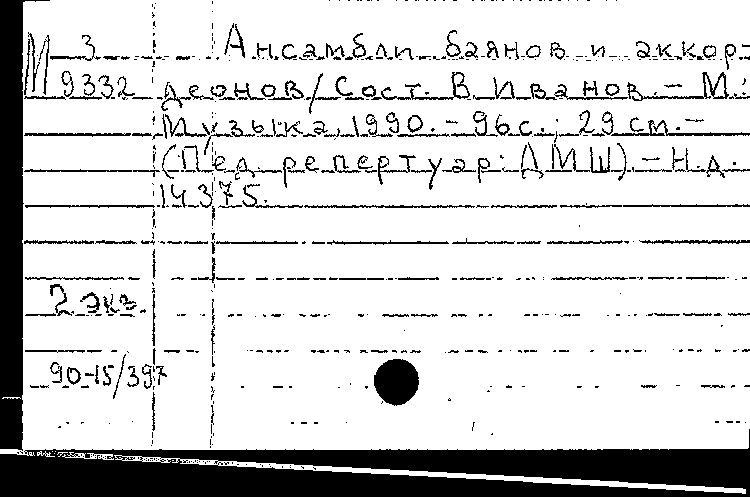 М 3 Ансамбли баянов и аккор-
9332 деонов/Сост. В. Иванов.- М.:
Музыка, 1990.- 96с.; 29см.-
(Пед. репертуар: ДМШ).- Н.д.
14375.
2 экз.
90-15/397